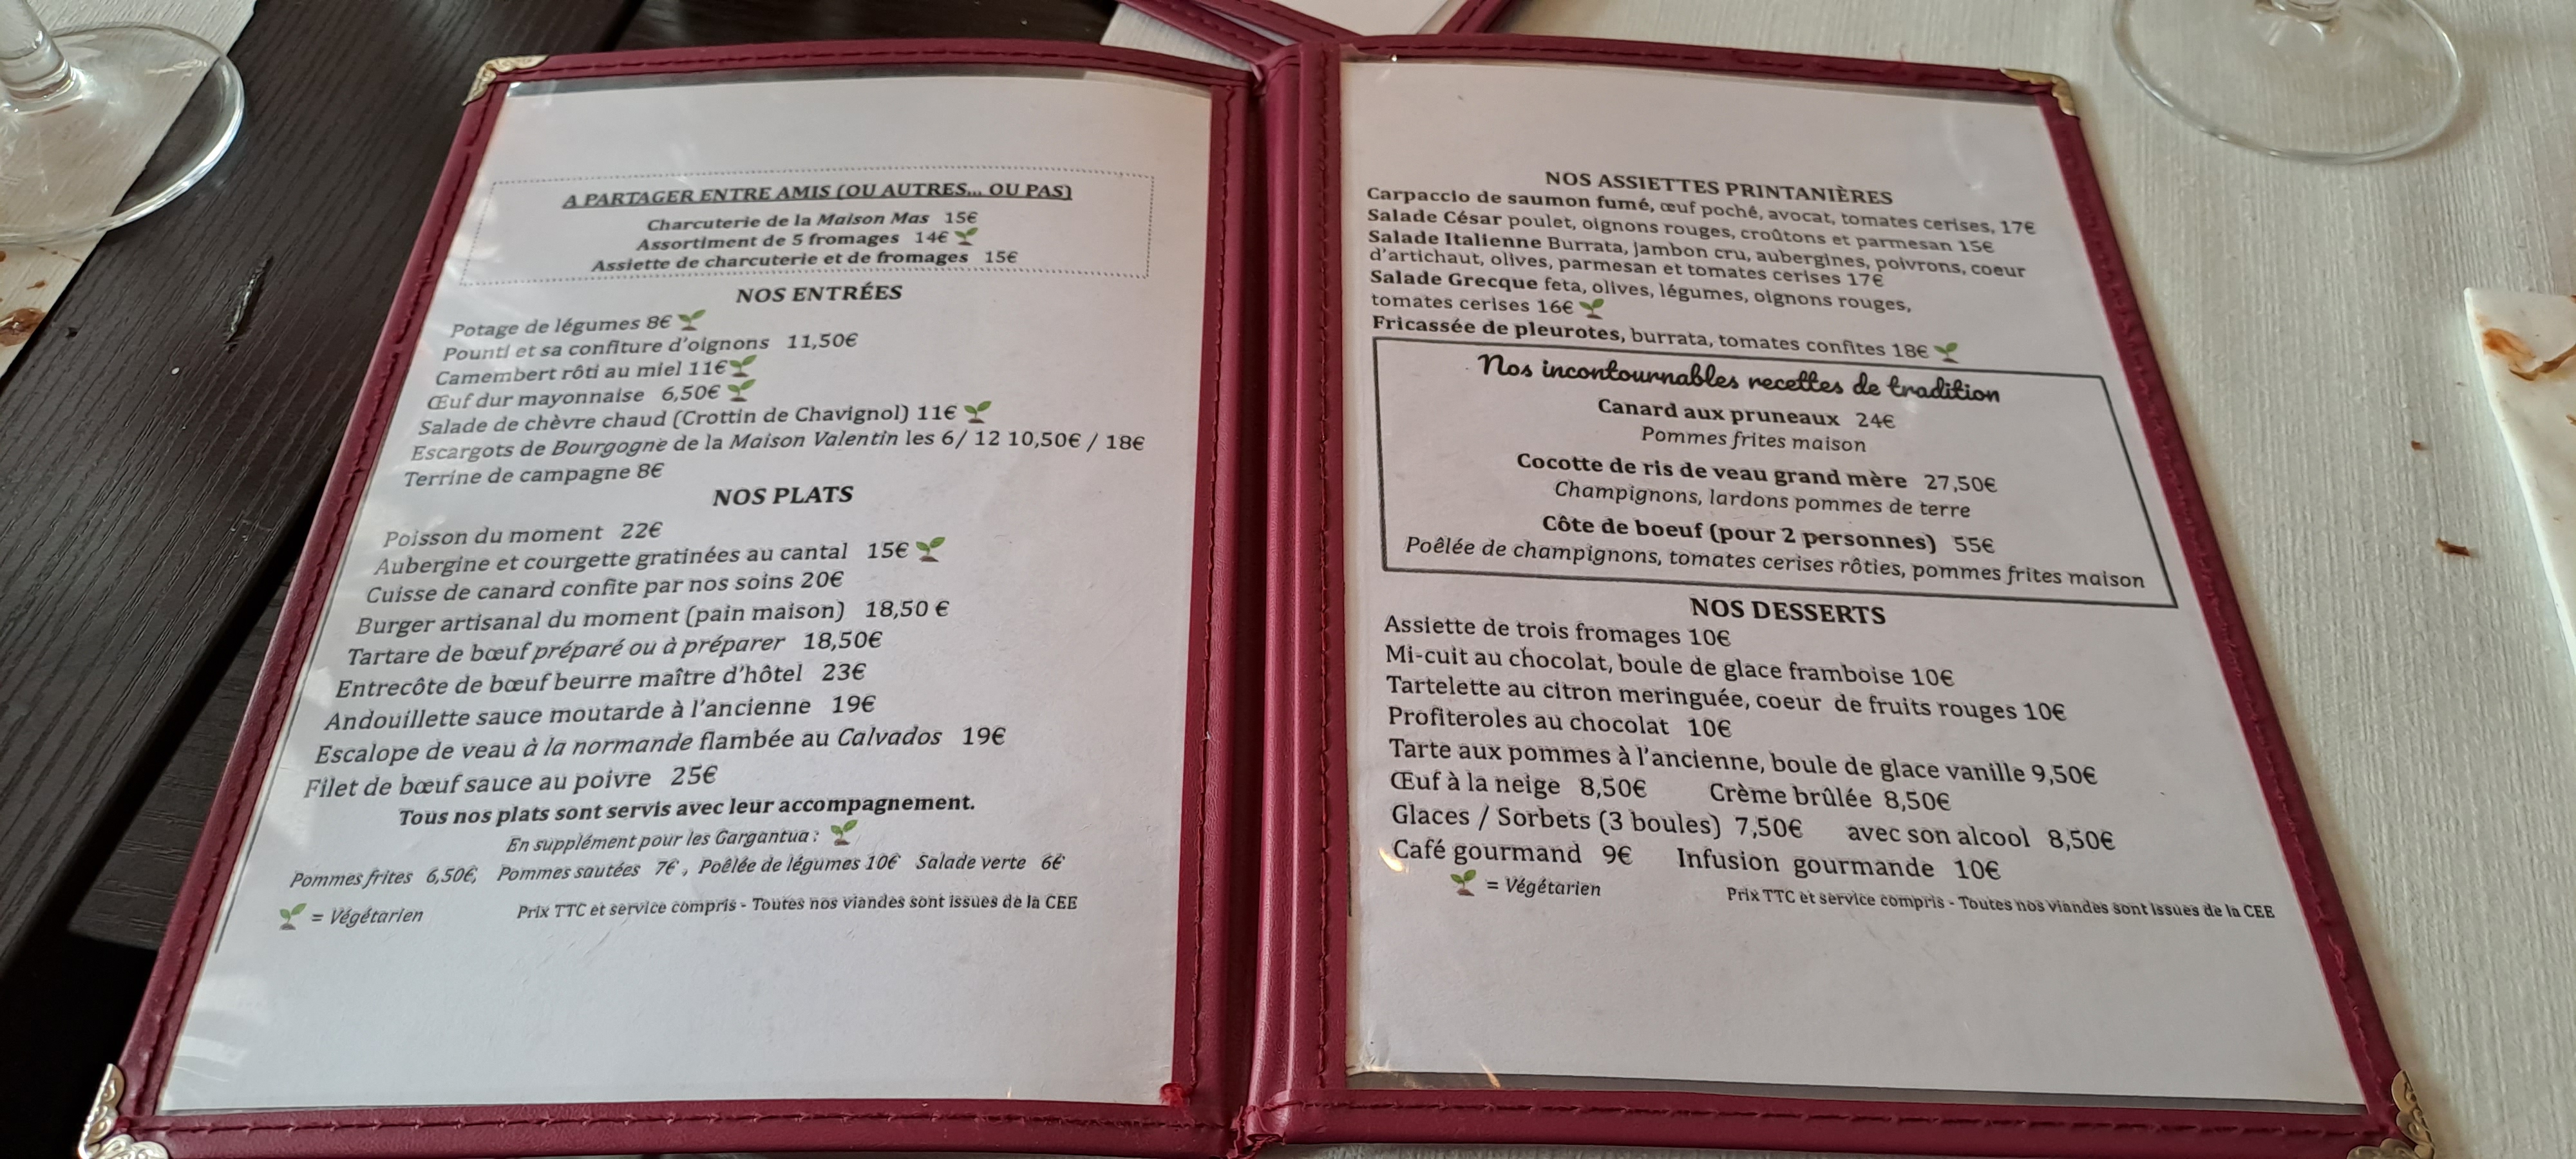 A PARTAGER ENTRE AMIS (OU AUTRES... OU PAS)
Charcuterie de la Maison Mas 15€
Assortiment de 5 fromages 14€
Assiette de charcuterie et de fromages 15€
NOS ENTRÉES
Potage de légumes 8€
Pounti et sa confiture d'oignons 11,50€
Camembert rôti au miel 11€
Œuf dur mayonnaise 6,50€
Salade de chèvre chaud (Crottin de Chavignol) 11€
Escargots de Bourgogne de la Maison Valentin les 6/ 12 10,50€ / 18€
Terrine de campagne 8€
NOS PLATS
Poisson du moment 22€
Aubergine et courgette gratinées au cantal 15€
Cuisse de canard confite par nos soins 20€
Burger artisanal du moment (pain maison) 18,50 €
Tartare de bœuf préparé ou à préparer 18,50€
Entrecôte de bœuf beurre maître d'hôtel 23€
Andouillette sauce moutarde à l'ancienne 19€
Escalope de veau à la normande flambée au Calvados 19€
Filet de bœuf sauce au poivre 25€
Tous nos plats sont servis avec leur accompagnement.
En supplément pour les Gargantua :
Pommes frites 6,50€, Pommes sautées 7€ , Poêlée de légumes 10€ Salade verte 6€
= Végétarien Prix TTC et service compris - Toutes nos viandes sont issues de la CEE
NOS ASSIETTES PRINTANIÈRES
Carpaccio de saumon fumé, œuf poché, avocat, tomates cerises, 17€
Salade César poulet, oignons rouges, croûtons et parmesan 15€
Salade Italienne Burrata, jambon cru, aubergines, poivrons, coeur
d'artichaut, olives, parmesan et tomates cerises 17€
Salade Grecque feta, olives, légumes, oignons rouges,
tomates cerises 16€
Fricassée de pleurotes, burrata, tomates confites 18€
Nos incontournables recettes de tradition
Canard aux pruneaux 24€
Pommes frites maison
Cocotte de ris de veau grand mère 27,50€
Champignons, lardons pommes de terre
Côte de boeuf (pour 2 personnes) 55€
Poêlée de champignons, tomates cerises rôties, pommes frites maison
NOS DESSERTS
Assiette de trois fromages 10€
Mi-cuit au chocolat, boule de glace framboise 10€
Tartelette au citron meringuée, coeur de fruits rouges 10€
Profiteroles au chocolat 10€
Tarte aux pommes à l'ancienne, boule de glace vanille 9,50€
Œuf à la neige 8,50€ Crème brûlée 8,50€
Glaces / Sorbets (3 boules) 7,50€ avec son alcool 8,50€
Café gourmand 9€ Infusion gourmande 10€
= Végétarien Prix TTC et service compris - Toutes nos viandes sont issues de la CEE